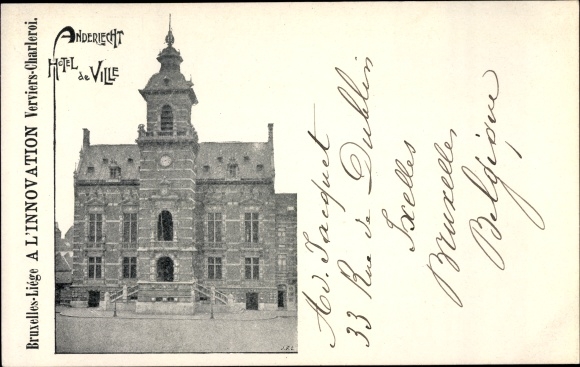 Bruxelles-Liége A L'INNOVATION Verviers-Charleroi.
ANDERLECHT
HOTEL
de VILLE
Ad. Jacquet
33 Rue de Dublin
Ixelles
Bruxelles
Belgique,
J.R.L.